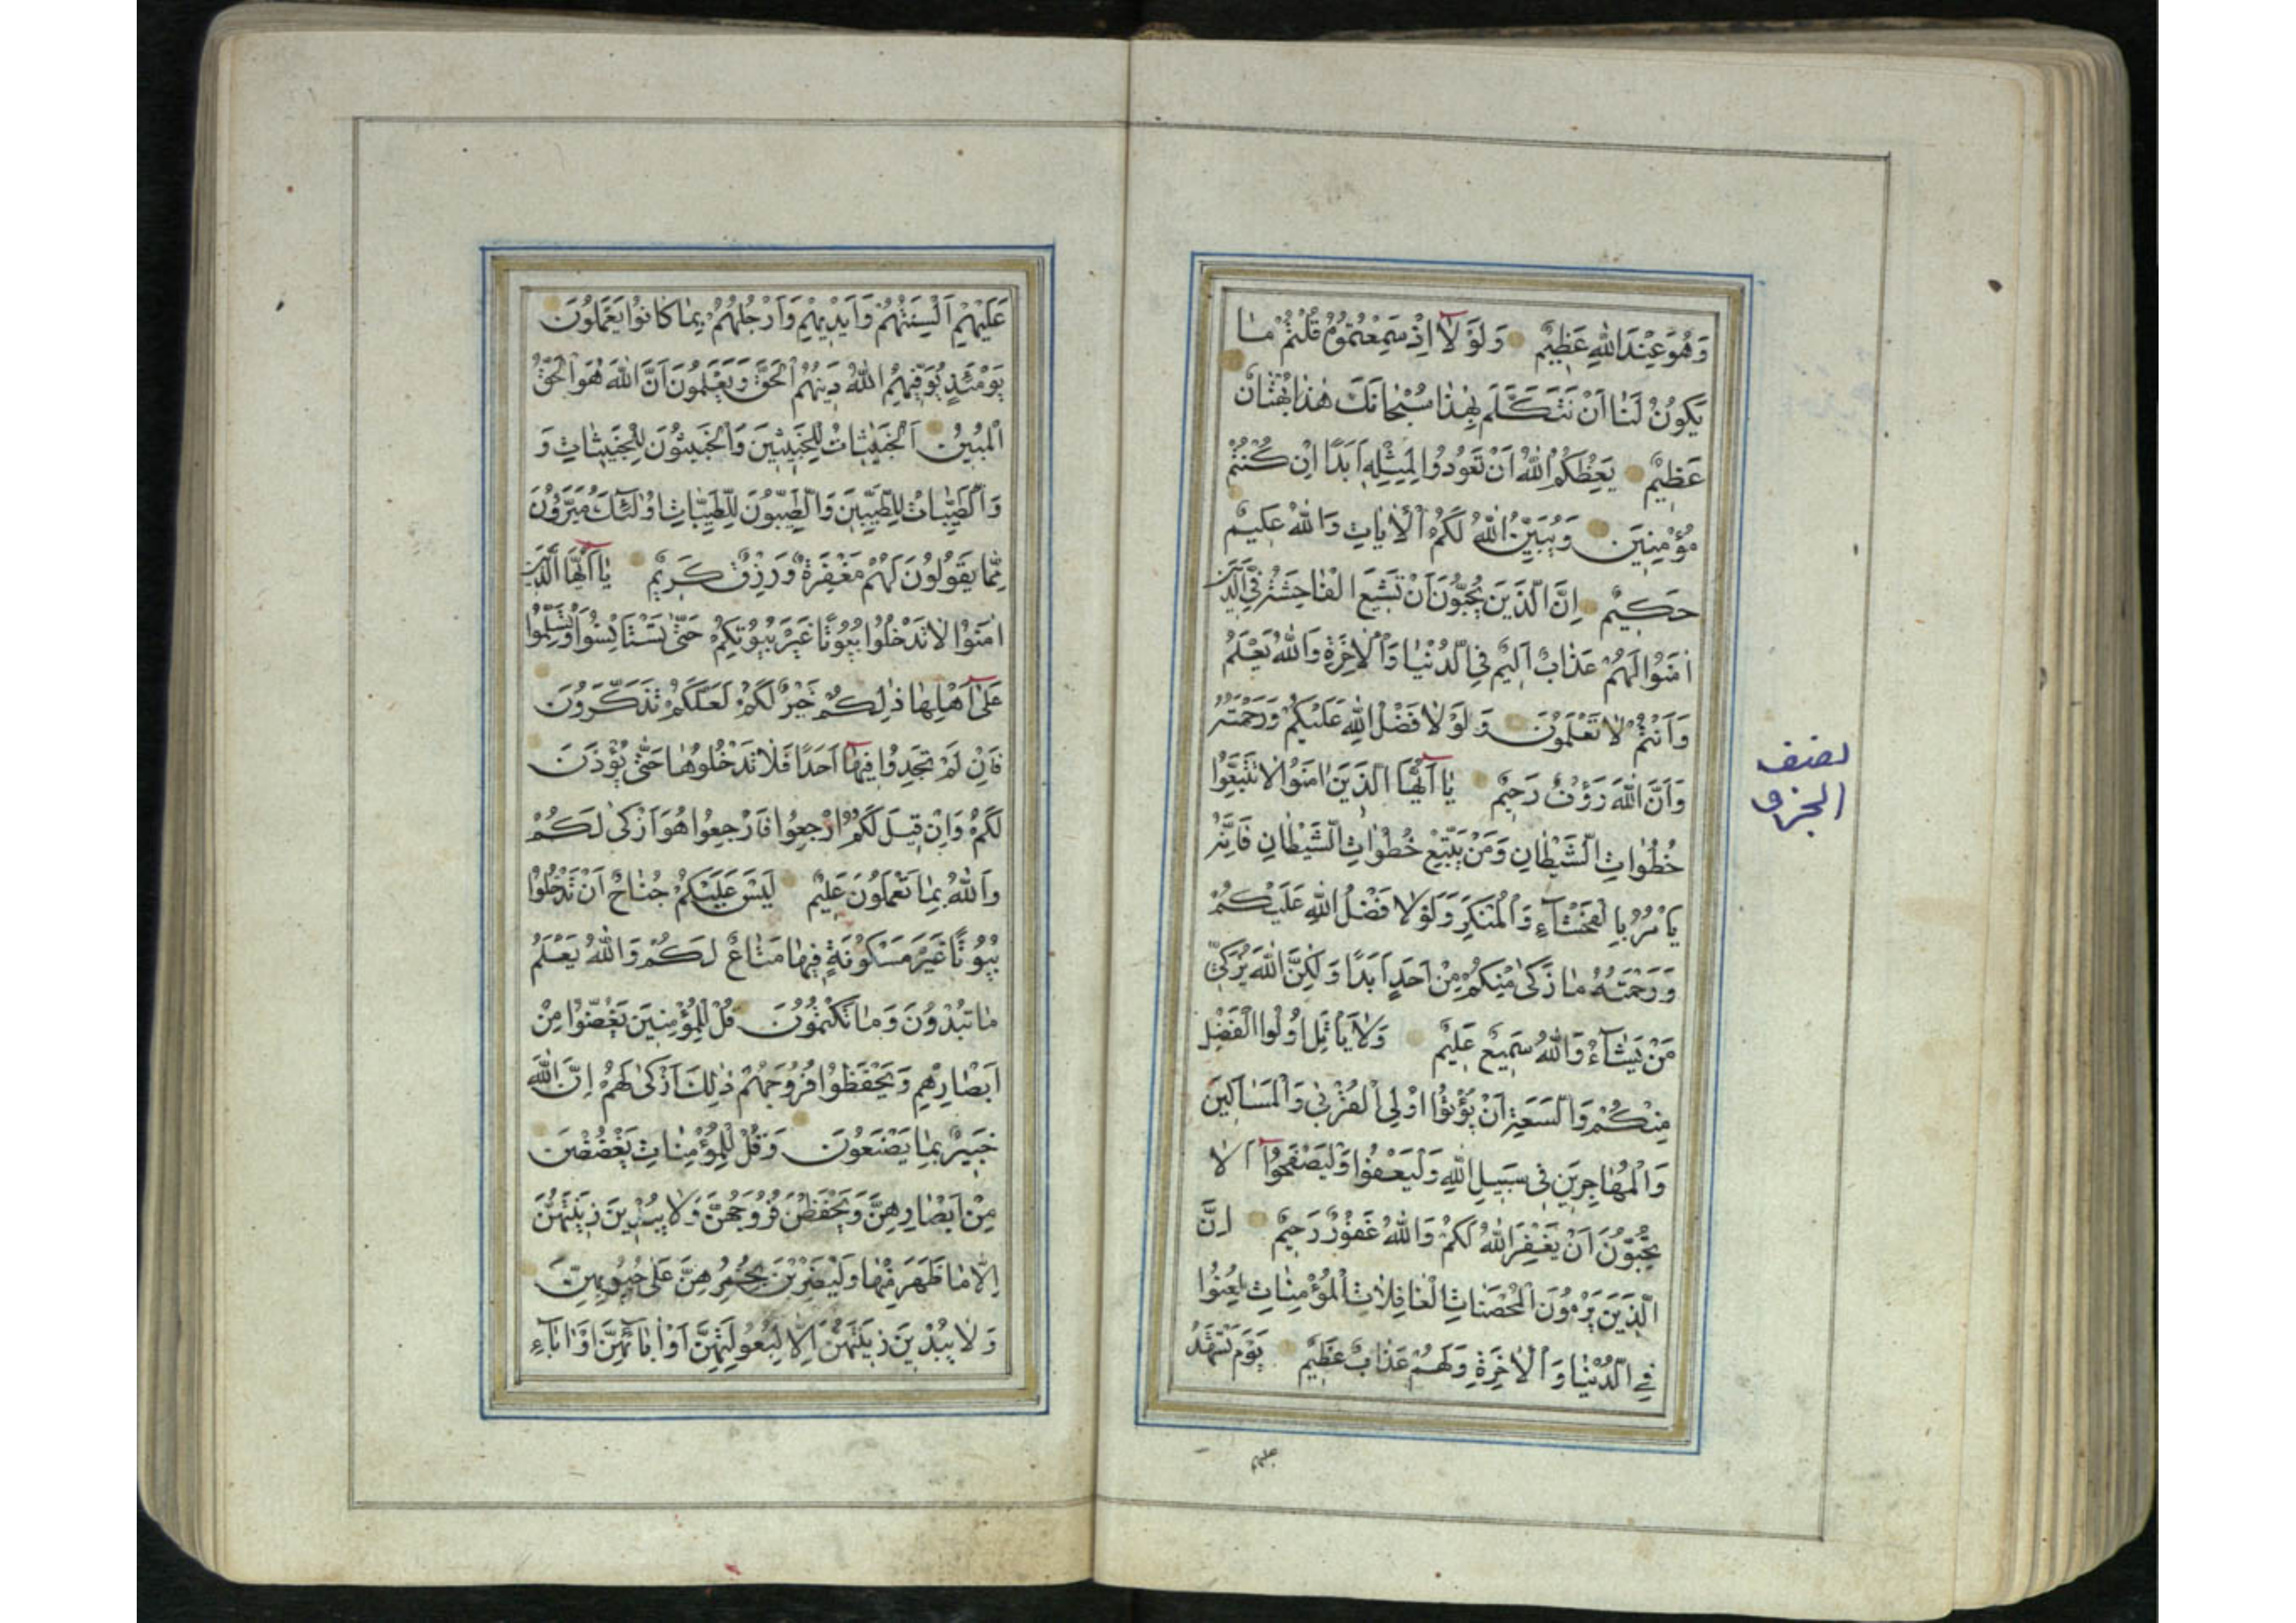 وَهُوَ عِنْدَ اللّٰهِ عَظِيمٌ وَلَوْ لَا اِذْ سَمِعْتُمُوهُ قُلْتُمْ مٰا
يَكُونُ لَنٰا اَنْ نَتَكَلَّمَ بِهٰذٰا سُبْحٰانَكَ هٰذٰا بُهْتٰانٌ
عَظِيمٌ يَعِظُكُمُ اللّٰهُ اَنْ تَعُودُوا لِمِثْلِهِ اَبَدًا اِنْ كُنْتُمْ
مُؤْمِنِينَ وَيُبَيِّنُ اللّٰهُ لَكُمُ الْاٰيٰاتِ وَاللّٰهُ عَلِيمٌ
حَكِيمٌ اِنَّ الَّذِينَ يُحِبُّونَ اَنْ تَشِيعَ الْفٰاحِشَةُ فِي الَّذِينَ
اٰمَنُوا لَهُمْ عَذٰابٌ اَلِيمٌ فِي الدُّنْيٰا وَالْاٰخِرَةِ وَاللّٰهُ يَعْلَمُ
وَاَنْتُمْ لٰا تَعْلَمُونَ وَلَوْ لٰا فَضْلُ اللّٰهِ عَلَيْكُمْ وَرَحْمَتُهُ
وَاَنَّ اللّٰهَ رَؤُفٌ رَحِيمٌ يٰا اَيُّهَا الَّذِينَ اٰمَنُوا لٰا تَتَّبِعُوا
خُطُوٰاتِ الشَّيْطٰانِ وَمَنْ يَتَّبِعْ خُطُوٰاتِ الشَّيْطٰانِ فَاِنَّهُ
يَاْمُرُ بِالْفَحْشٰاءِ وَالْمُنْكَرِ وَلَوْ لٰا فَضْلُ اللّٰهِ عَلَيْكُمْ
وَرَحْمَتُهُ مٰا زَكٰى مِنْكُمْ مِنْ اَحَدٍ اَبَدًا وَلٰكِنَّ اللّٰهَ يُزَكِّي
مَنْ يَشٰاءُ وَاللّٰهُ سَمِيعٌ عَلِيمٌ وَلٰا يَاْتَلِ اُولُوا الْفَضْلِ
مِنْكُمْ وَالسَّعَةِ اَنْ يُؤْتُوا اُولِي الْقُرْبٰى وَالْمَسٰاكِينَ
وَالْمُهٰاجِرِينَ فِي سَبِيلِ اللّٰهِ وَلْيَعْفُوا وَلْيَصْفَحُوا اَلٰا
تُحِبُّونَ اَنْ يَغْفِرَ اللّٰهُ لَكُمْ وَاللّٰهُ غَفُورٌ رَحِيمٌ اِنَّ
الَّذِينَ يَرْمُونَ الْمُحْصَنٰاتِ الْغٰافِلٰاتِ الْمُؤْمِنٰاتِ لُعِنُوا
فِي الدُّنْيٰا وَالْاٰخِرَةِ وَلَهُمْ عَذٰابٌ عَظِيمٌ يَوْمَ تَشْهَدُ
عليهم
نصف
الجزو
عَلَيْهِمْ اَلْسِنَتُهُمْ وَاَيْدِيهِمْ وَاَرْجُلُهُمْ بِمٰا كٰانُوا يَعْمَلُونَ
يَوْمَئِذٍ يُوَفِّيهِمُ اللّٰهُ دِينَهُمُ الْحَقَّ وَيَعْلَمُونَ اَنَّ اللّٰهَ هُوَ الْحَقُّ
الْمُبِينُ اَلْخَبِيثٰاتُ لِلْخَبِيثِينَ وَالْخَبِيثُونَ لِلْخَبِيثٰاتِ وَ
وَالطَّيِّبٰاتُ لِلطَّيِّبِينَ وَالطَّيِّبُونَ لِلطَّيِّبٰاتِ اُولٰئِكَ مُبَرَّؤُنَ
مِمّٰا يَقُولُونَ لَهُمْ مَغْفِرَةٌ وَرِزْقٌ كَرِيمٌ يٰا اَيُّهَا الَّذِينَ
اٰمَنُوا لٰا تَدْخُلُوا بُيُوتًا غَيْرَ بُيُوتِكُمْ حَتّٰى تَسْتَاْنِسُوا وَتُسَلِّمُوا
عَلٰى اَهْلِهٰا ذٰلِكُمْ خَيْرٌ لَكُمْ لَعَلَّكُمْ تَذَكَّرُونَ
فَاِنْ لَمْ تَجِدُوا فِيهٰا اَحَدًا فَلٰا تَدْخُلُوهٰا حَتّٰى يُؤْذَنَ
لَكُمْ وَاِنْ قِيلَ لَكُمُ ارْجِعُوا فَارْجِعُوا هُوَ اَزْكٰى لَكُمْ
وَاللّٰهُ بِمٰا تَعْمَلُونَ عَلِيمٌ لَيْسَ عَلَيْكُمْ جُنٰاحٌ اَنْ تَدْخُلُوا
بُيُوتًا غَيْرَ مَسْكُونَةٍ فِيهٰا مَتٰاعٌ لَكُمْ وَاللّٰهُ يَعْلَمُ
مٰا تُبْدُونَ وَمٰا تَكْتُمُونَ قُلْ لِلْمُؤْمِنِينَ يَغُضُّوا مِنْ
اَبْصٰارِهِمْ وَيَحْفَظُوا فُرُوجَهُمْ ذٰلِكَ اَزْكٰى لَهُمْ اِنَّ اللّٰهَ
خَبِيرٌ بِمٰا يَصْنَعُونَ وَقُلْ لِلْمُؤْمِنٰاتِ يَغْضُضْنَ
مِنْ اَبْصٰارِهِنَّ وَيَحْفَظْنَ فُرُوجَهُنَّ وَلٰا يُبْدِينَ زِينَتَهُنَّ
اِلّٰا مٰا ظَهَرَ مِنْهٰا وَلْيَضْرِبْنَ بِخُمُرِهِنَّ عَلٰى جُيُوبِهِنَّ
وَلٰا يُبْدِينَ زِينَتَهُنَّ اِلّٰا لِبُعُولَتِهِنَّ اَوْ اٰبٰائِهِنَّ اَوْ اٰبٰاءِ